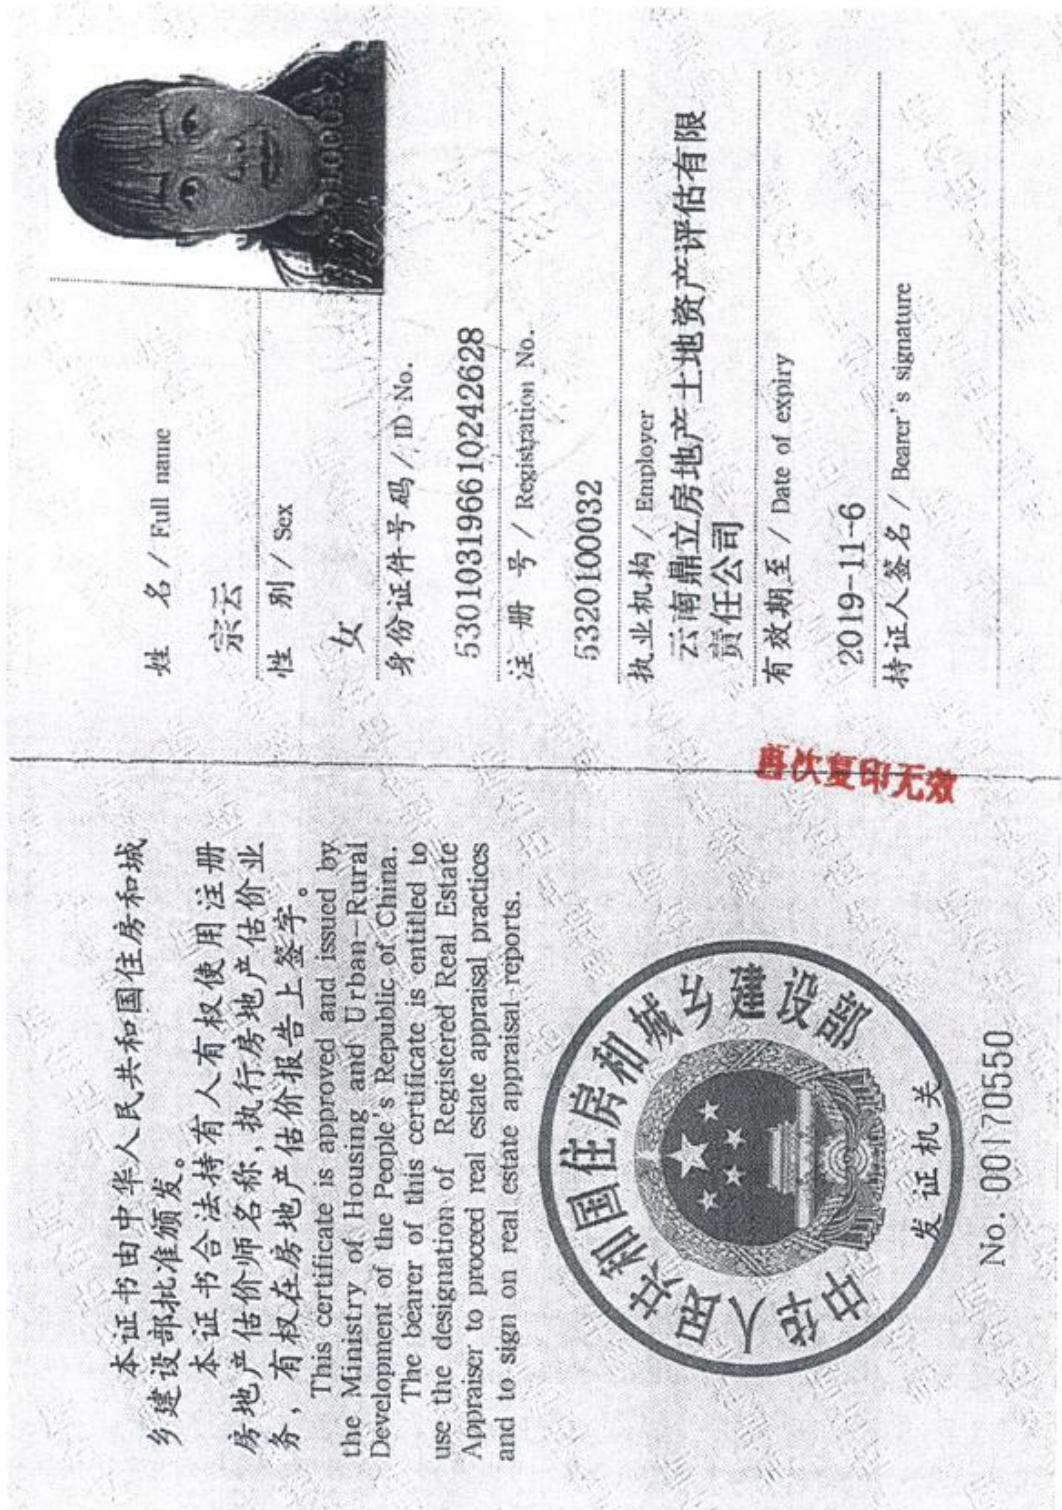 本证书由中华人民共和国住房和城
乡建设部批准颁发。
本证书合法持有人有权使用注册
房地产估价师名称，执行房地产估价业
务，有权在房地产估价报告上签字。
This certificate is approved and issued by
the Ministry of Housing and Urban-Rural
Development of the People's Republic of China.
The bearer of this certificate is entitled to
use the designation of Registered Real Estate
Appraiser to proceed real estate appraisal practices
and to sign on real estate appraisal reports.
中华人民共和国住房和城乡建设部
发证机关
No. 00170550
姓 名 / Full name
宗云
性 别 / Sex
女
身份证件号码 / ID No.
530103196610242628
注 册 号 / Registration No.
5320100032
执业机构 / Employer
云南鼎立房地产土地资产评估有限
责任公司
有效期至 / Date of expiry
2019-11-6
持证人签名 / Bearer's signature
再次复印无效